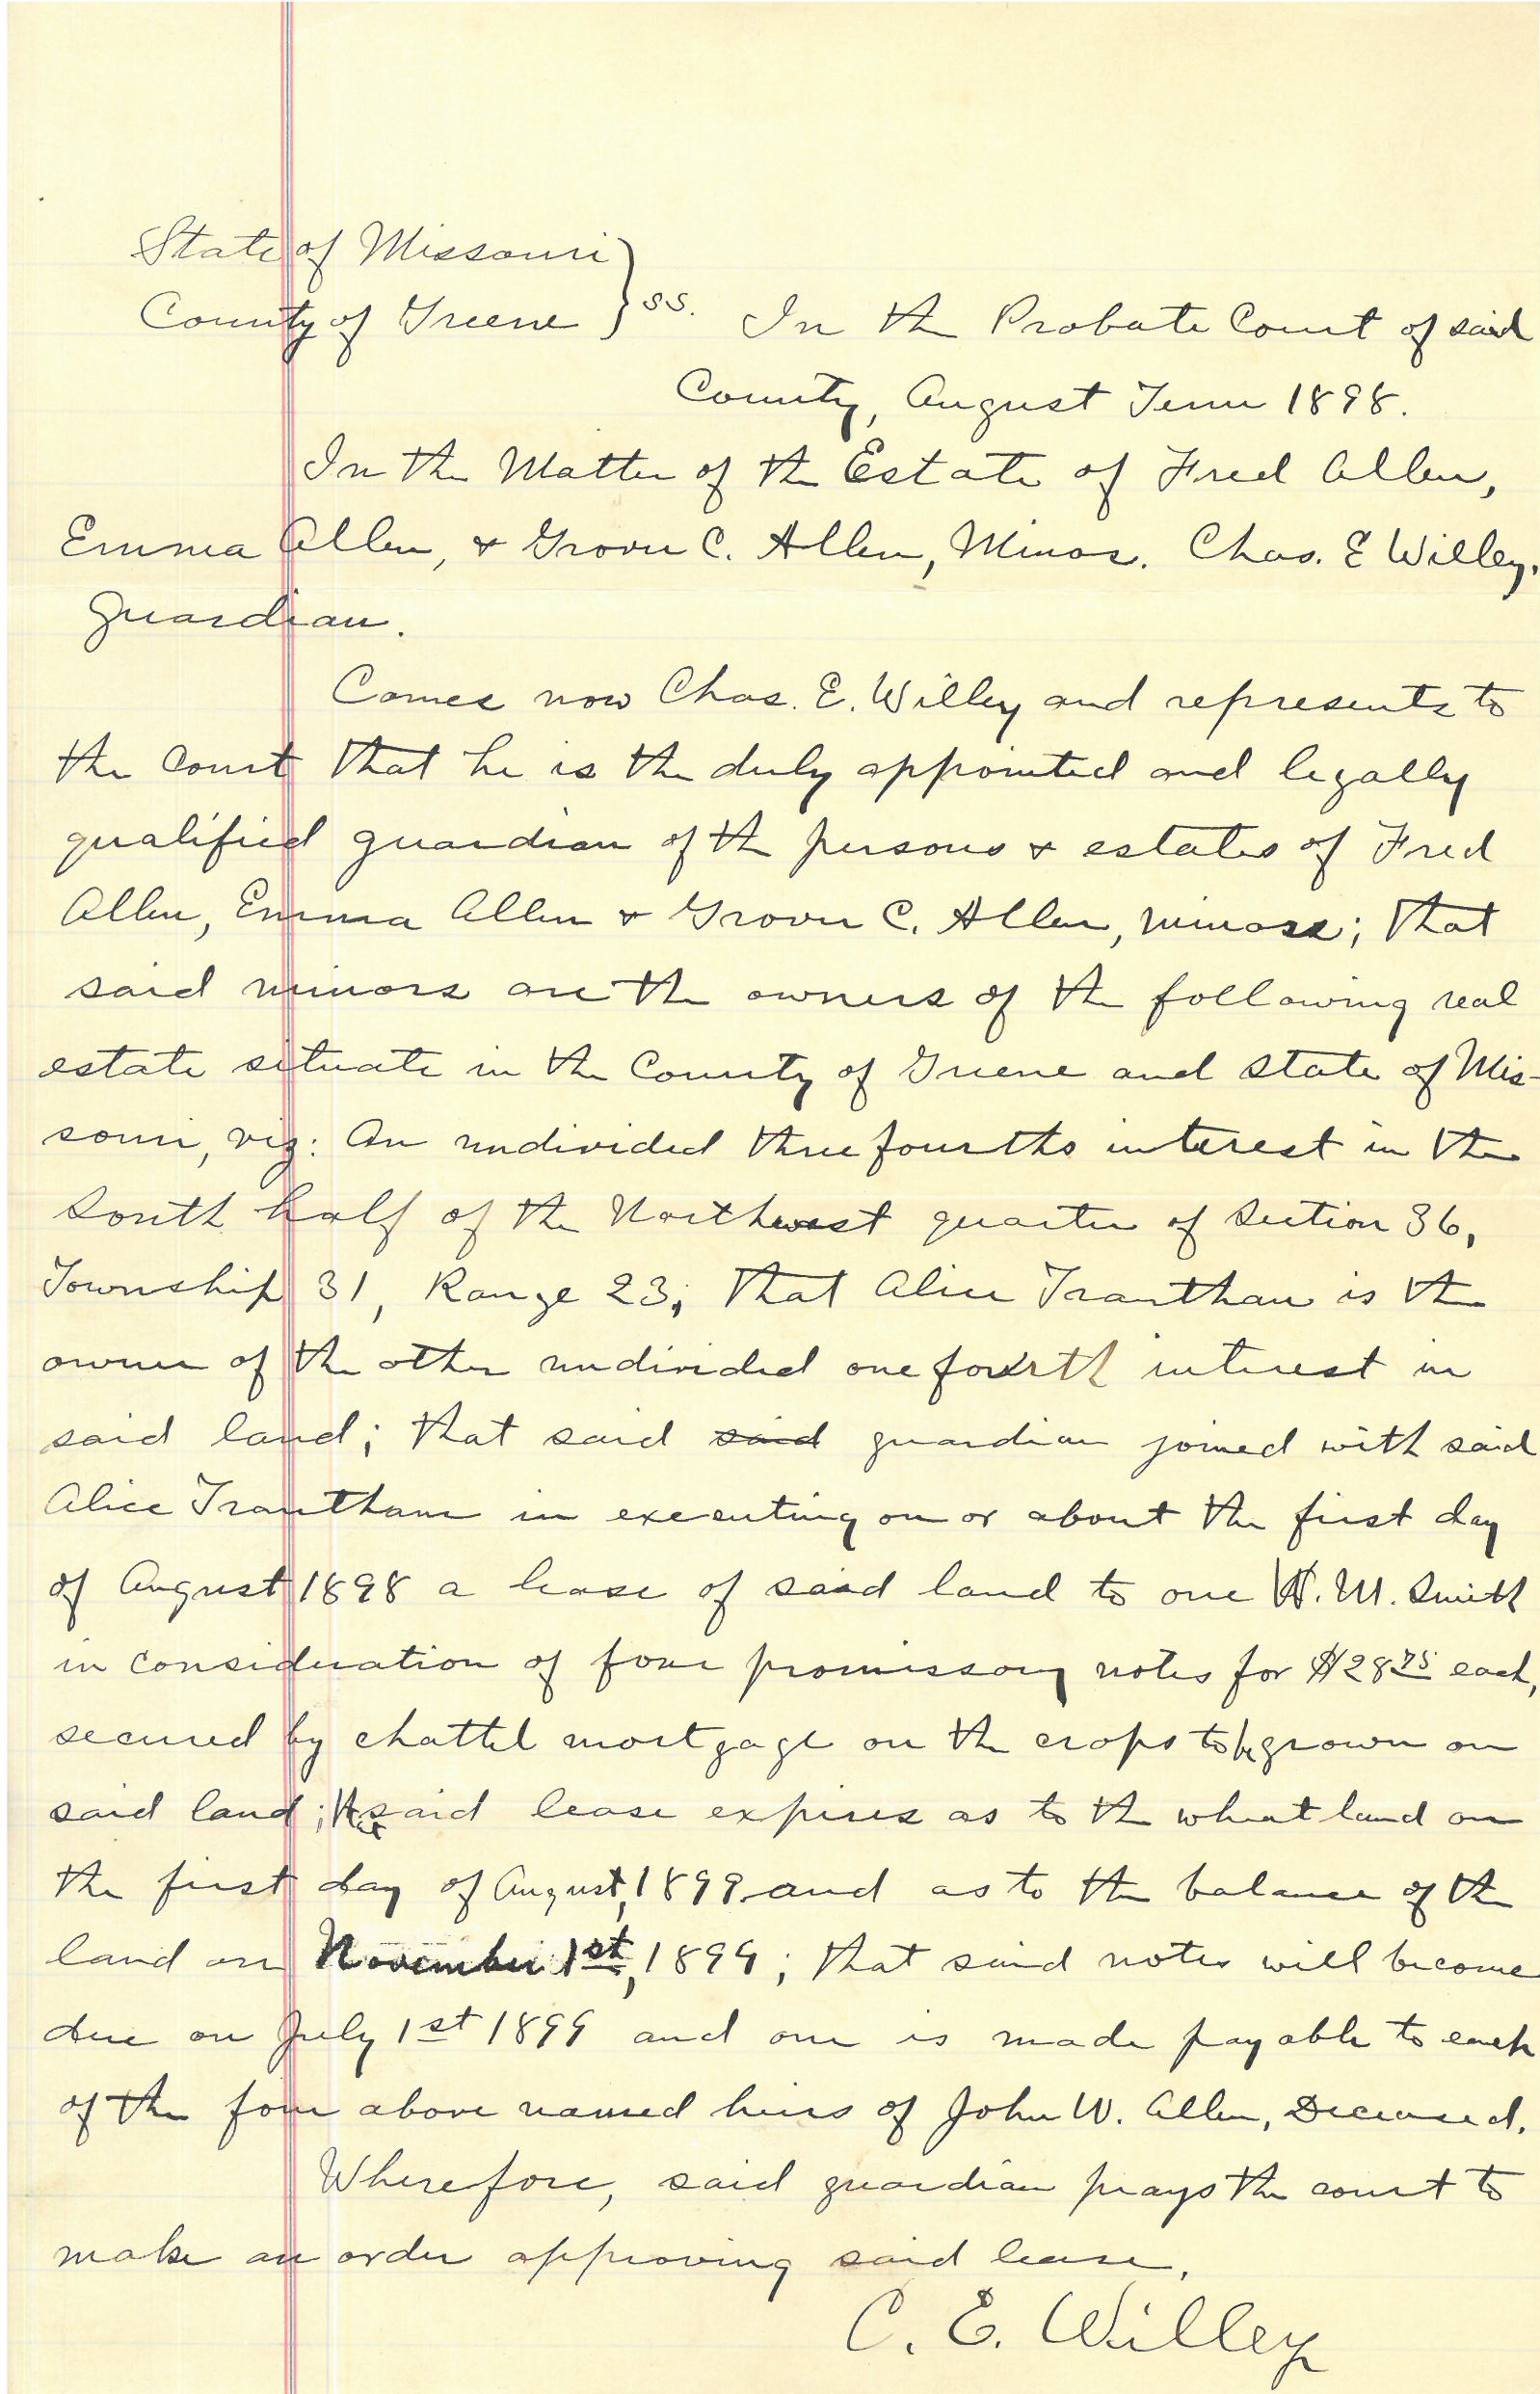 State of Missouri
County of Greene } ss. In the Probate Court of said
County, August Term 1898.
In the Matter of the Estate of Fred Allen,
Emma Allen, & Grover C. Allen, Minors. Chas. E Willey,
guardian.
Comes now Chas. E. Willey and represents to
the court that he is the duly appointed and legally
qualified guardian of the persons & estates of Fred
Allen, Emma Allen & Grover C. Allen, minors; that
said minors are the owners of the following real
estate situate in the County of Greene and State of Mis-
souri, viz: An undivided three fourths interest in the
South half of the Northwest quarter of Section 36,
Township 31, Range 23; that Alice Trantham is the
owner of the other undivided one fourth interest in
said land; that said said guardian joined with said
Alice Trantham in executing on or about the first day
of August 1898 a lease of said land to one W. M. Smith
in consideration of four promissory notes for $28 75 each,
secured by chattel mortgage on the crops to be grown on
said land; that said lease expires as to the wheat land on
the first day of August, 1899 and as to the balance of the
land on November 1st, 1899; that said notes will become
due on July 1st 1899 and one is made payable to each
of the four above named heirs of John W. Allen, Deceased.
Wherefore, said guardian prays the court to
make an order approving said lease.
C. E. Willey